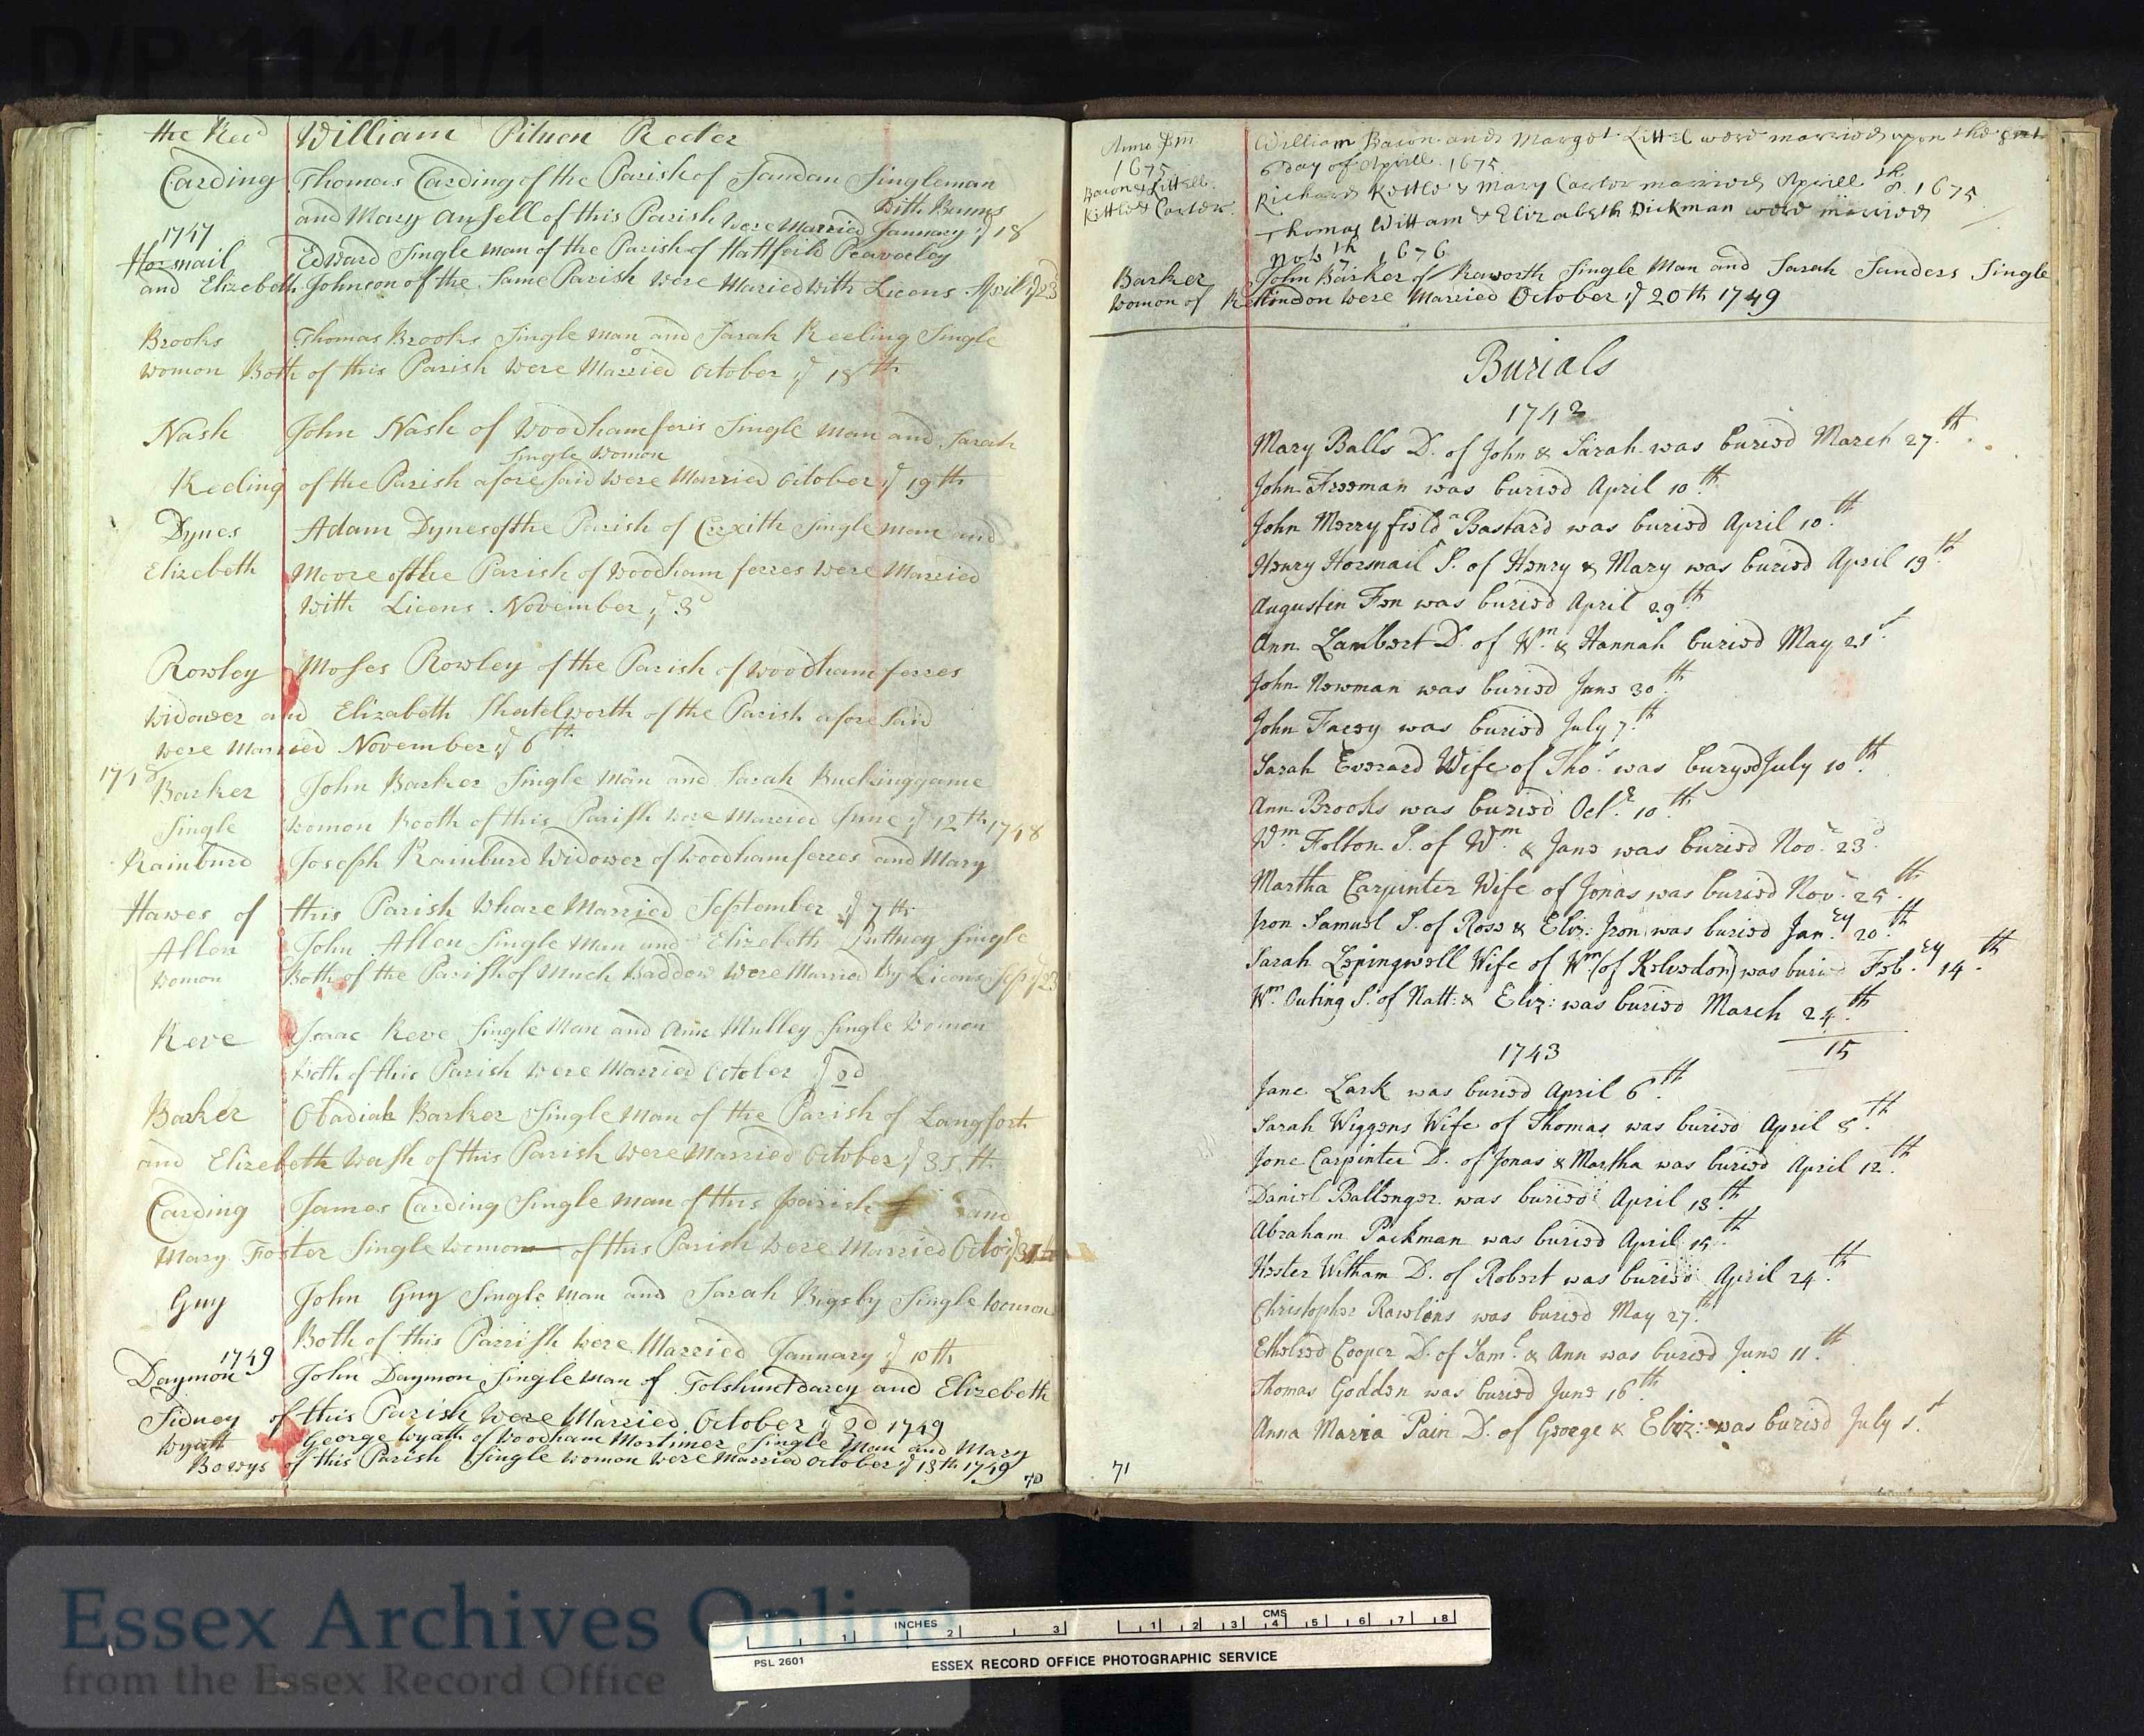 D/P 114/1/1
the Red William Pituen Rector
Carding Thomas Carding of the Parish of Sandon Singleman
With Banns
and Mary Ansell of this Parish were Married January ye 18
1747
Hor snail Edward Single man of the Parish of Hattfeild Peavorley
and Elizebeth Johnson of the Same Parish were Maried with Licens April ye 23
Brooks Thomas Brooks Single man and Sarah Keeling Single
womon Both of this Parish were Married October ye 18th
Nash John Nash of Woodhamferis Single man and Sarah
Single Womon
Keeling of the Parish afore said were Married October ye 19th
Dynes Adam Dynes of the Parish of Crixith Single man and
Elizebeth Moore of the Parish of Woodham ferres were Married
With Licens. November ye 3d
Rowley Moses Rowley of the Parish of woodham ferres
Widower and Elizabeth Shatelworth of the Parish afore said
were Married November ye 6th
1748
Barker John Barker Single Man and Sarah Buckinggame
Single Womon Booth of this Parish were Married June ye 12th 1748
Rainburd Joseph Rainburd Widower of Woodhamferres and Mary
Hawes of this Parish Whare Married September ye 7th
Allen John Allen Single Man and Elizebeth Single
womon Both of the Parish of Much Baddow were Married by Licens Sep ye 23
Reve Isaac Reve Single Man and Ann Mulley Single Womon
Both of this Parish were Married October ye 2d
Barker Obadiah Barker Single Man of the Parish of Langfort
and Elizebeth Weash of this Parish were Married October ye 31th
Carding James Carding Single man of this parish and
Mary Foster Single womon of this Parish were Married Octo ye 31th
Guy John Guy Single Man and Sarah Bigsby Single womon
Both of this Parrish were Married January ye 10th
1749
Daymon John Daymon Single man of Tolshuntdarcy and Elizebeth
Sidney of this Parish were Married October ye 2d 1749
Wyatt George Wyath of Woodham Mortimer Single Man and Mary
Bowys of this Parish Single woman were Married October ye 13th 1749
70
Anno Dm William Bacon and Margot Littel were married upon the
1675 6 day of Aprill 1675
Bacon & Littell.
Kittle & Carter. Richard Kettle & Mary Carter married Aprill 8th. 1675
Thomas Wittam & Elizabeth Dickman were married
Nob 7th 1676
Barker John Barker of Raworth Single Man and Sarah Sanders Single
womon of Retindon were Married October ye 20th 1749
Burials
1742
Mary Balls D. of John & Sarah was buried March 27.th
John Freeman was buried April 10.th
John Merryfield a Bastard was buried April 10.th
Henry Horsnail S. of Henry & Mary was buried April 19.th
Augustin Fen was buried April 29.th
Ann Lambert D. of Wm & Hannah buried May 21st
John Newman was buried June 30.th
John Facey was buried July 7.th
Sarah Everard Wife of Tho.s was buryed July 10.th
Ann Brooks was buried Oct.r 10.th
Wm Felton S. of Wm & Jane was buried Nov.r 23d
Martha Carpinter Wife of Jonas was buried Nov.r 25.th
Iron Samuel S. of Rose & Eliz: Iron was buried Jan.ry 20.th
Sarah Lepingwell Wife of Wm (of Kelvedon) was buried Feb.ry 14.th
Wm Outing S. of Natt: & Eliz: was buried March 24.th
15
1743
Jane Lark was buried April 6.th
Sarah Wiggens Wife of Thomas was buried April 8.th
Jone Carpinter D. of Jonas & Martha was buried April 12.th
Daniel Ballenger was buried April 13.th
Abraham Packman was buried April 15.th
Hester Witham D. of Robert was buried April 24.th
Christopher Rawlins was buried May 27.th
Ethelred Cooper D. of Sam.l & Ann was buried June 11.th
Thomas Godden was buried June 16.th
Anna Maria Pain D. of George & Eliz: was buried July 1.st
71
Essex Archives Online
from the Essex Record Office
INCHES 1 2 3 CMS 1 2 3 4 5 6 7 8
PSL 2601
ESSEX RECORD OFFICE PHOTOGRAPHIC SERVICE